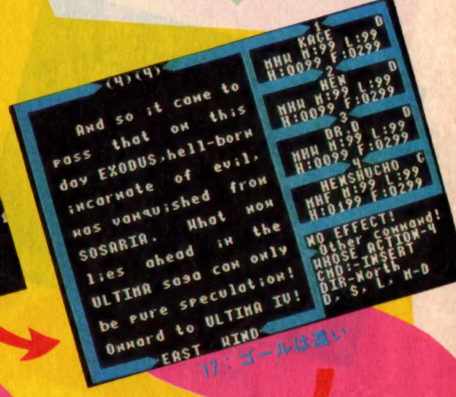 (4)(4)
And so it came to
pass that on this
day EXODUS,hell-born
incarnate of evil,
was vanquished from
SOSARIA. What now
lies ahead in the
ULTIMA saga can only
be pure speculation!
Onward to ULTIMA IV!
EAST WIND
1
KAGE D
MHW M:99 L:99
H:0099 F:0299
2
HEN D
MHW M:99 L:99
H:0099 F:0299
3
DR.D D
MHW M:99 L:99
H:0099 F:0299
4
HENSHUCHO G
MHF M:99 L:99
H:0199 F:0299
NO EFFECT!
Other command!
WHOSE ACTION-4
CMD:-INSERT
DIR-North
O, S, L, M-D
17：ゴールは遠い